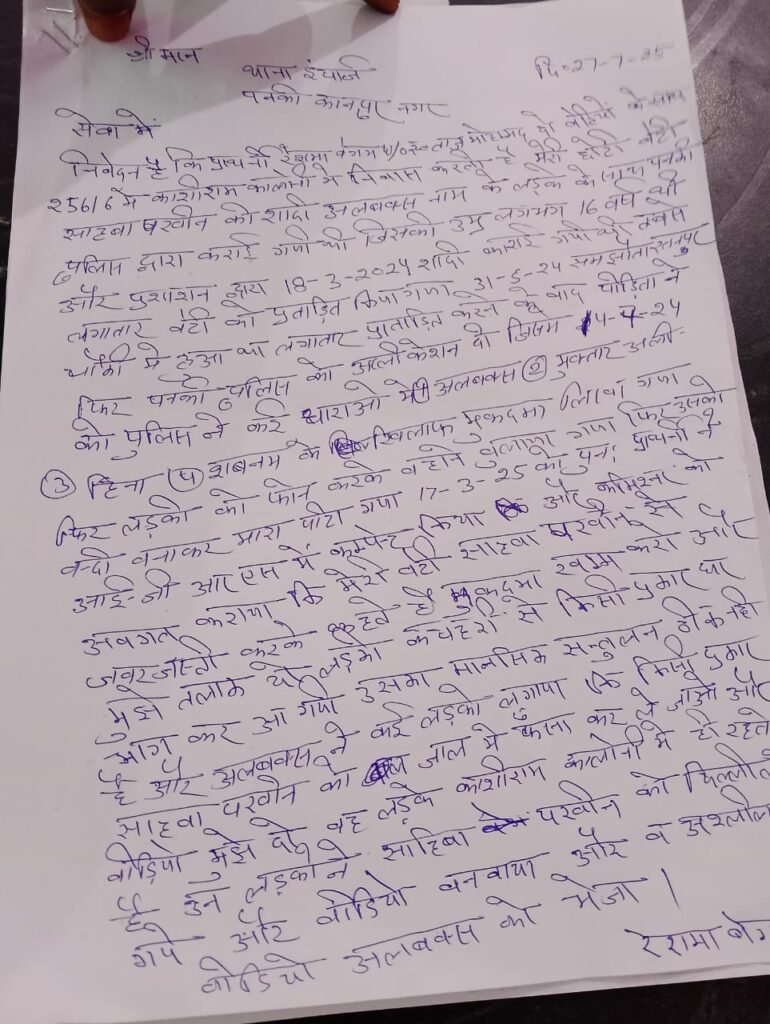 श्रीमान
थाना इंचार्ज दि० 27-7-25
पनकी कानपुर नगर
सेवा में
निवेदन है कि प्रार्थनी रेशमा बेगम w/o मोहम्मद दो बेटियों के साथ
256/6 में काशीराम कालोनी में निवास करती है मेरी छोटी बेटी
साहबा परवीन की शादी अलबक्स नाम के लड़के के साथ पनकी
पुलिस द्वारा कराई गयी थी जिसकी उम्र लगभग 16 वर्ष थी
और प्रशाशन द्वारा 18-3-2024 शादी कराई गयी थी तबसे
लगातार बेटी को प्रताड़ित किया गया 31-5-24 समझौता रतनपुर
चौकी में हुआ था लगातार प्रताड़ित करने के बाद पीड़िता ने
फिर पनकी पुलिस को अप्लीकेशन दी जिसमें 14-7-24
को पुलिस ने कई धाराओ में ① अलबक्स ② मुक्तार अली
③ हिना ④ शबनम के खिलाफ मुकदमा लिखा गया
फिर लड़की को फोन करके वहाँ बुलाया गया फिर उसको
बन्दी बनाकर मारा पीटा गया 17-3-25 को पुनः प्रार्थनी ने
आई-जी आर एस में कम्पलेन्ट किया और कमिश्नर को
अवगत कराया कि मेरी बेटी साहबा परवीन से
जबरजस्ती करके कहते है मुकदमा खत्म करो और
मुझे तलाक दो लड़की कचेहरी से किसी प्रकार घर
भाग कर आ गयी उसका मानसिक सन्तुलन ठीक नही
है और अलबक्स ने कई लड़को लगाया कि किसी प्रकार
साहबा परवीन को जाल में फसा कर ले जाओ और
वीडियो मुझे दो वह लड़के काशीराम कालोनी में ही रहते
है उन लड़को ने साहिबा परवीन को
गये और वीडियो बनवाया और व अश्लील
वीडियो अलबक्स को भेजा।
रेशमा बेग